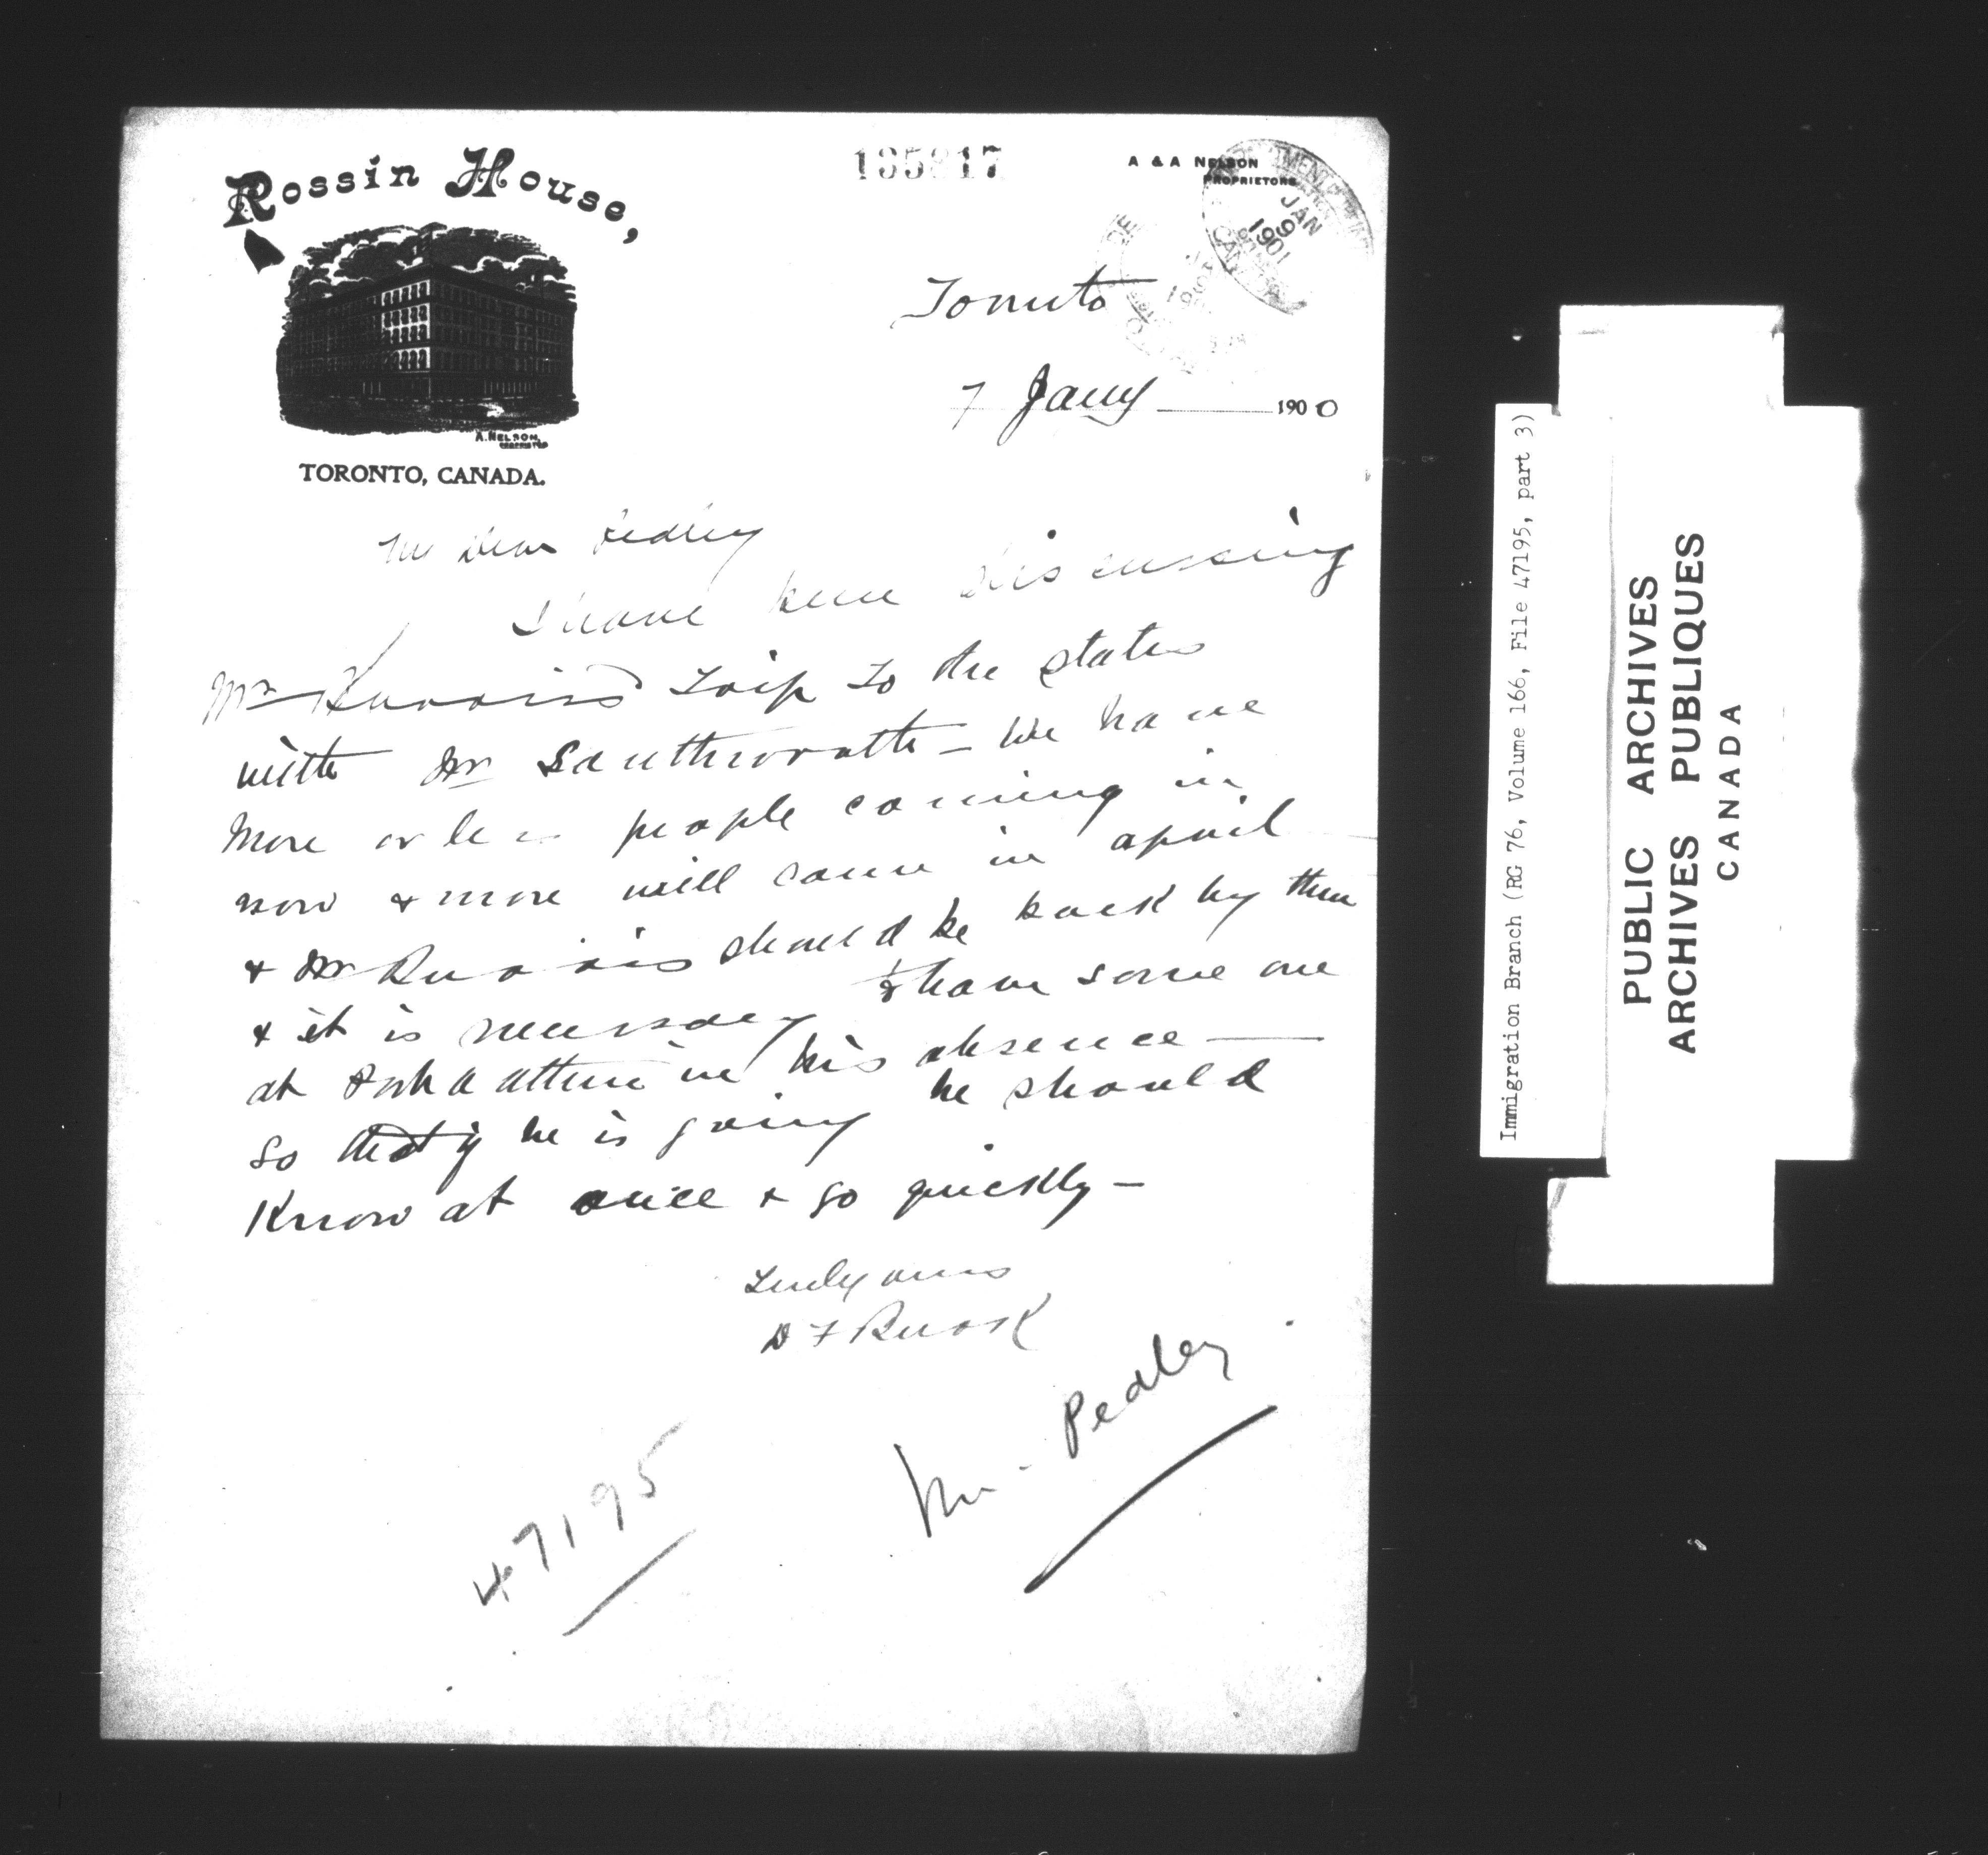 Rossin House,
A. NELSON,
TORONTO, CANADA.
A & A NELSON
PROPRIETORS
JAN
9
1901
Toronto
7 Jany 1900
My Dear Pedley
I have been discussing
Mr trip to the states
with Mr Southworth – We have
More or less people coming in
now & more will come in april
& Mr should be back by then
& it is necessary to have some one
at in his absence —
so that if he is going he should
Know at once & go quickly –
Truly yours
47195
Mr. Pedley
Immigration Branch (RG 76, Volume 166, File 47195, part 3)
PUBLIC ARCHIVES
ARCHIVES PUBLIQUES
CANADA